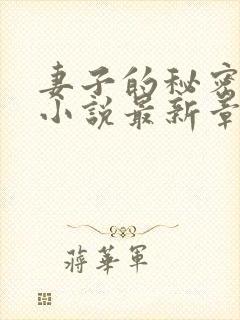 妻子的秘密
小說最新章
蔣華軍